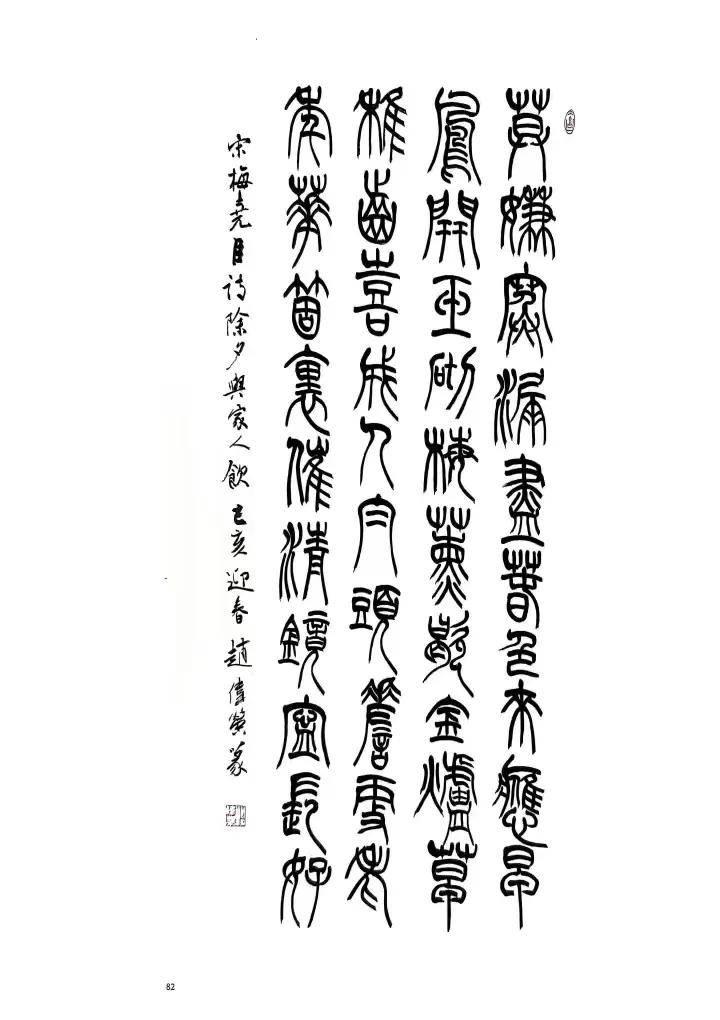 莫嫌寒漏盡春色來應早
風開玉砌梅薰歇金爐草
稚齒喜成人白頭嗟更老
年華箇裏催清鏡寧長好
宋梅堯臣詩除夕與家人飲己亥迎春趙偉榮篆
82